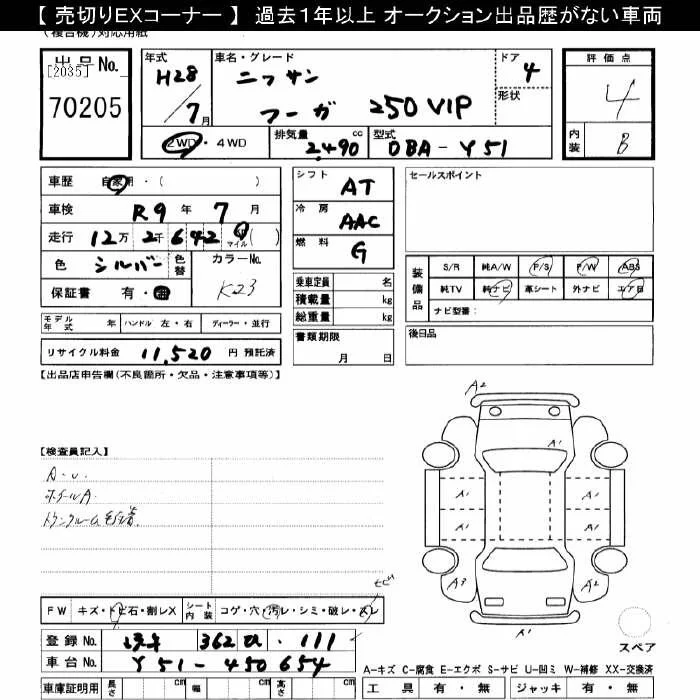 【 売切りEXコーナー 】 過去１年以上 オークション出品歴がない車両
(複合機)対応用紙
出品No. [2035] 70205
年式 H28 / 7月
車名・グレード ニッサン フーガ 250 VIP
ドア 4
形状
評価点 4
内装 B
2WD・4WD
排気量 2490 cc
型式 DBA - Y51
車歴 自家用・( )
車検 R9年 7月
走行 12万 2千 642 マイル ( )
色 シルバー 色替 カラーNo. K23
保証書 有・無
モデル年式 年 ハンドル 左・右 ディーラー・並行
リサイクル料金 11,520 円 預託済
シフト AT
冷房 AAC
燃料 G
乗車定員 名
積載量 kg
総重量 kg
書類期限 月 日
セールスポイント
装備品 S/R 純A/W P/S P/W ABS
純TV 純ナビ 革シート 外ナビ エアB
ナビ型番：
後日品
【出品店申告欄(不良箇所・欠品・注意事項等)】
【検査員記入】
A・U.
ホイールA
トランクルーム
A2
A1
A1
A1
A1
A1
A1
A3
A2
A1
スペア
FW キズ・トビ石・割レX シート内装 コゲ・穴・汚レ・シミ・破レ・スレ
登録No. 362 ・111
車台No. Y51-450654
車庫証明用 長さ cm 幅 cm 高さ cm
A-キズ C-腐食 E-エクボ S-サビ U-凹ミ W-補修 XX-交換済
工具 有・無 ジャッキ 有・無